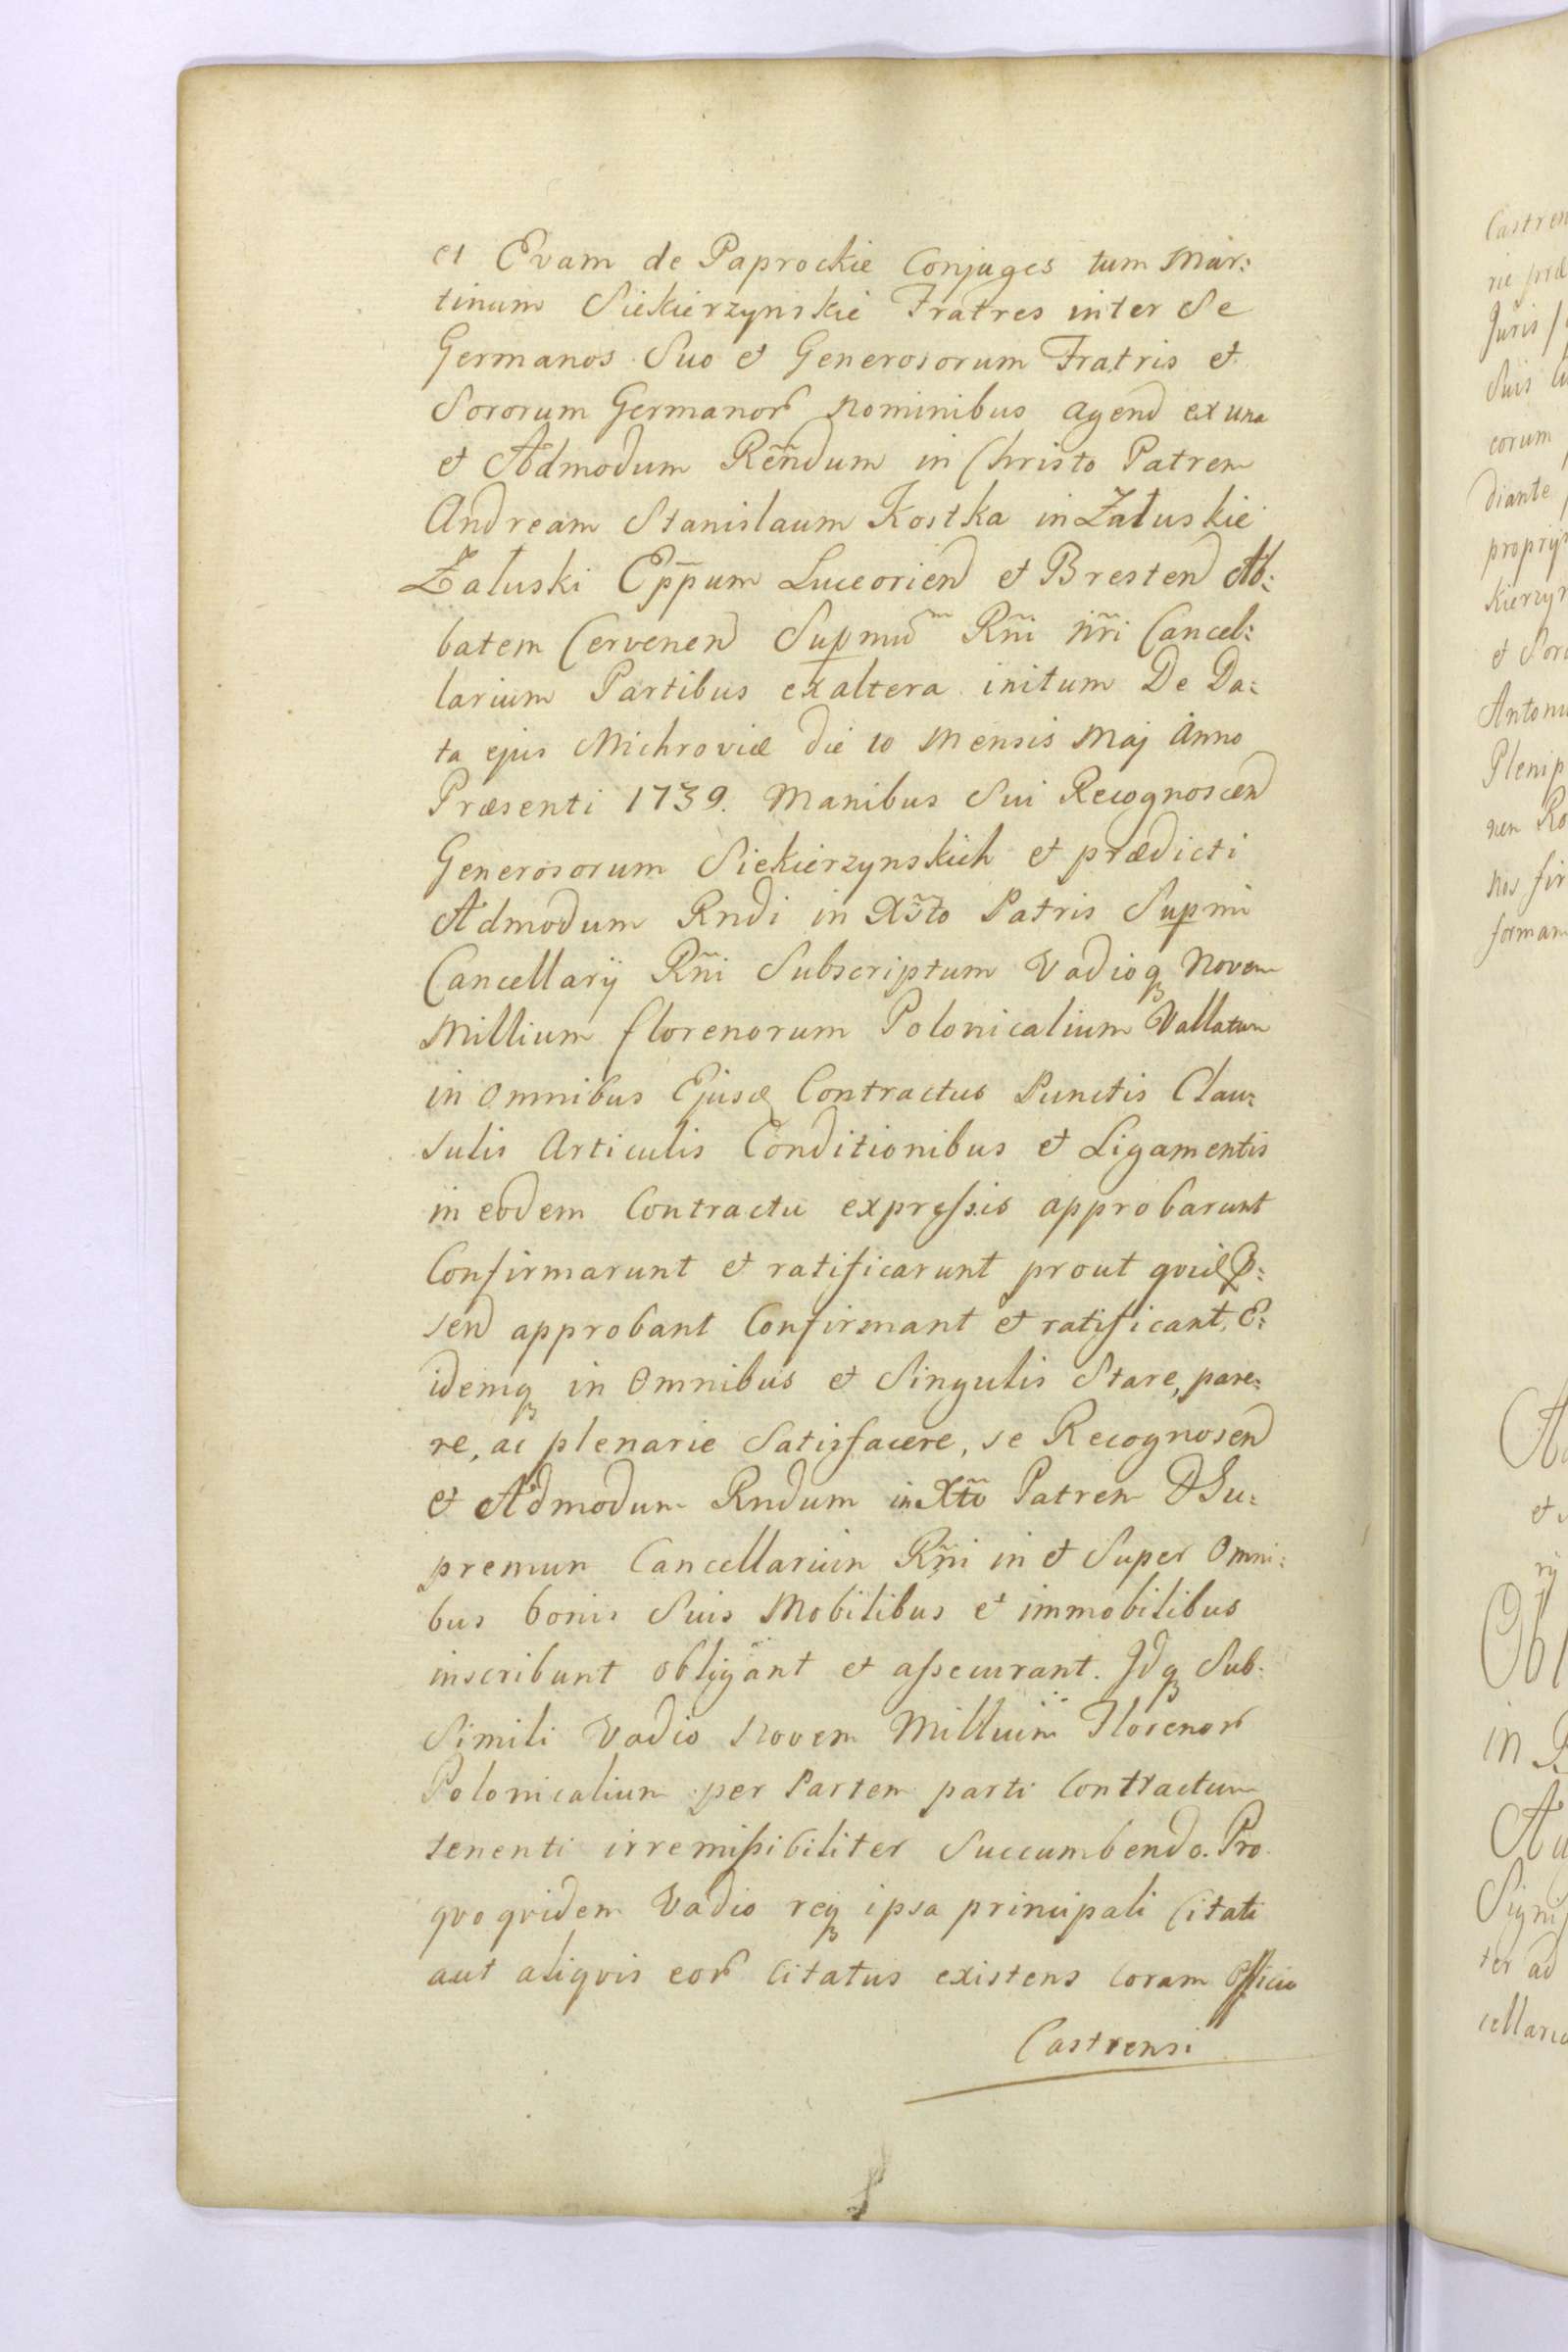 et Evam de Paprockie Conjuges tum Mar:
tinum Siekierzynskie Fratres inter Se
Germanos Suo et Generosorum Fratris et
Sororum Germanor nominibus agend ex una
et Admodum Rẽndum in Christo Patrem
Andream Stanislaum Kostka in Załuskie
Załuski Epp̃um Luceorien et Bresten Ab:
batem Cervenen Supmũ Rñi ñri Cancel:
larium Partibus ex altera initum De Da:
ta ejus Michroviæ die 10 Mensis Maj Anno
Præsenti 1739. Manibus Sui Recognoscen
Generosorum Siekierzynskich et prædicti
Admodum Rndi in Xsto Patris Supmi
Cancellarij Rñi Subscriptum Vadioq Novem
Millium florenorum Polonicalium Vallatum
in Omnibus Ejusd Contractus Punctis Clau:
sulis Articulis Conditionibus et Ligamentis
in eodem Contractu expressis approbarunt
Confirmarunt et ratificarunt prout quidem
sen approbant Confirmant et ratificant, E:
idemq in Omnibus et Singulis Stare, pare:
re, ac plenarie Satisfacere, se Recognoscen
et Admodum Rndum in Xtõ Patrem D Su:
premum Cancellarium Rñi in et Super Omni:
bus bonis Suis Mobilibus et immobilibus
inscribunt obligant et assecurant. Idq Sub:
Simili Vadio Novem Millium Florenor
Polonicalium per Partem parti Contractum
tenenti irremissibiliter Succumbendo. Pro
quo quidem Vadio req ipsa principali Citati
aut aliquis eor Citatus existens Coram Officio
Castrensi
Castren
Juris
Suis
eorum
diante
et Soro
Plenip
nos fir
forman
in
Signi
ter ad
cellario